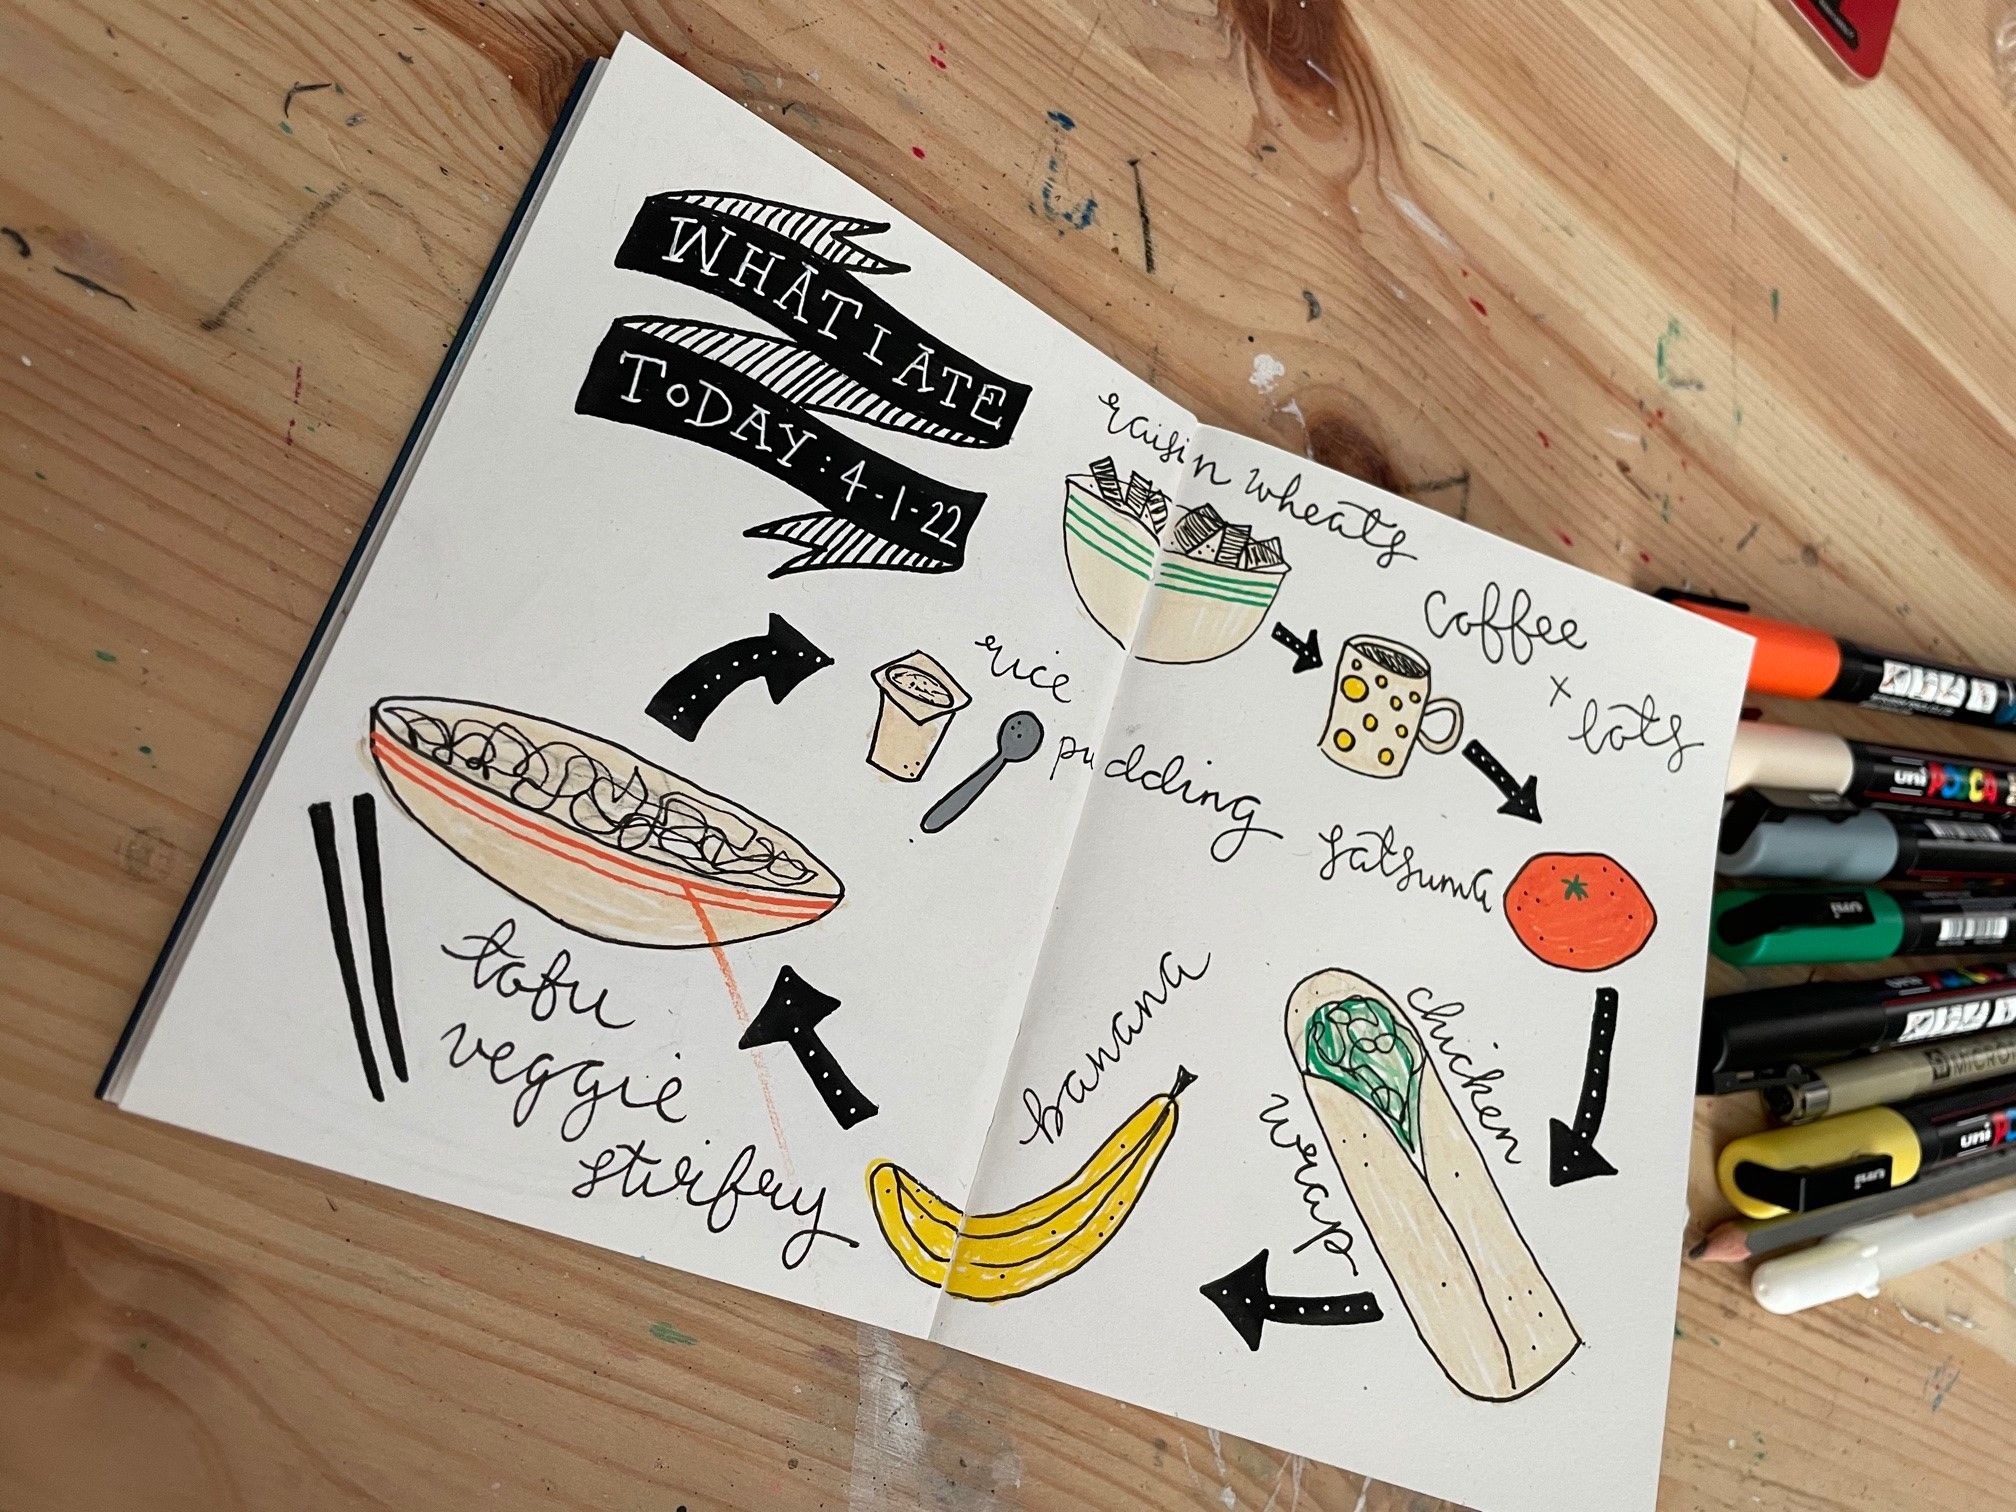 WHAT I ATE
TODAY: 4-1-22
raisin wheats
coffee
x lots
satsuma
chicken
wrap
banana
tofu
veggie
stirfry
rice
pudding
uni POSCA
uni
MICRON
uni